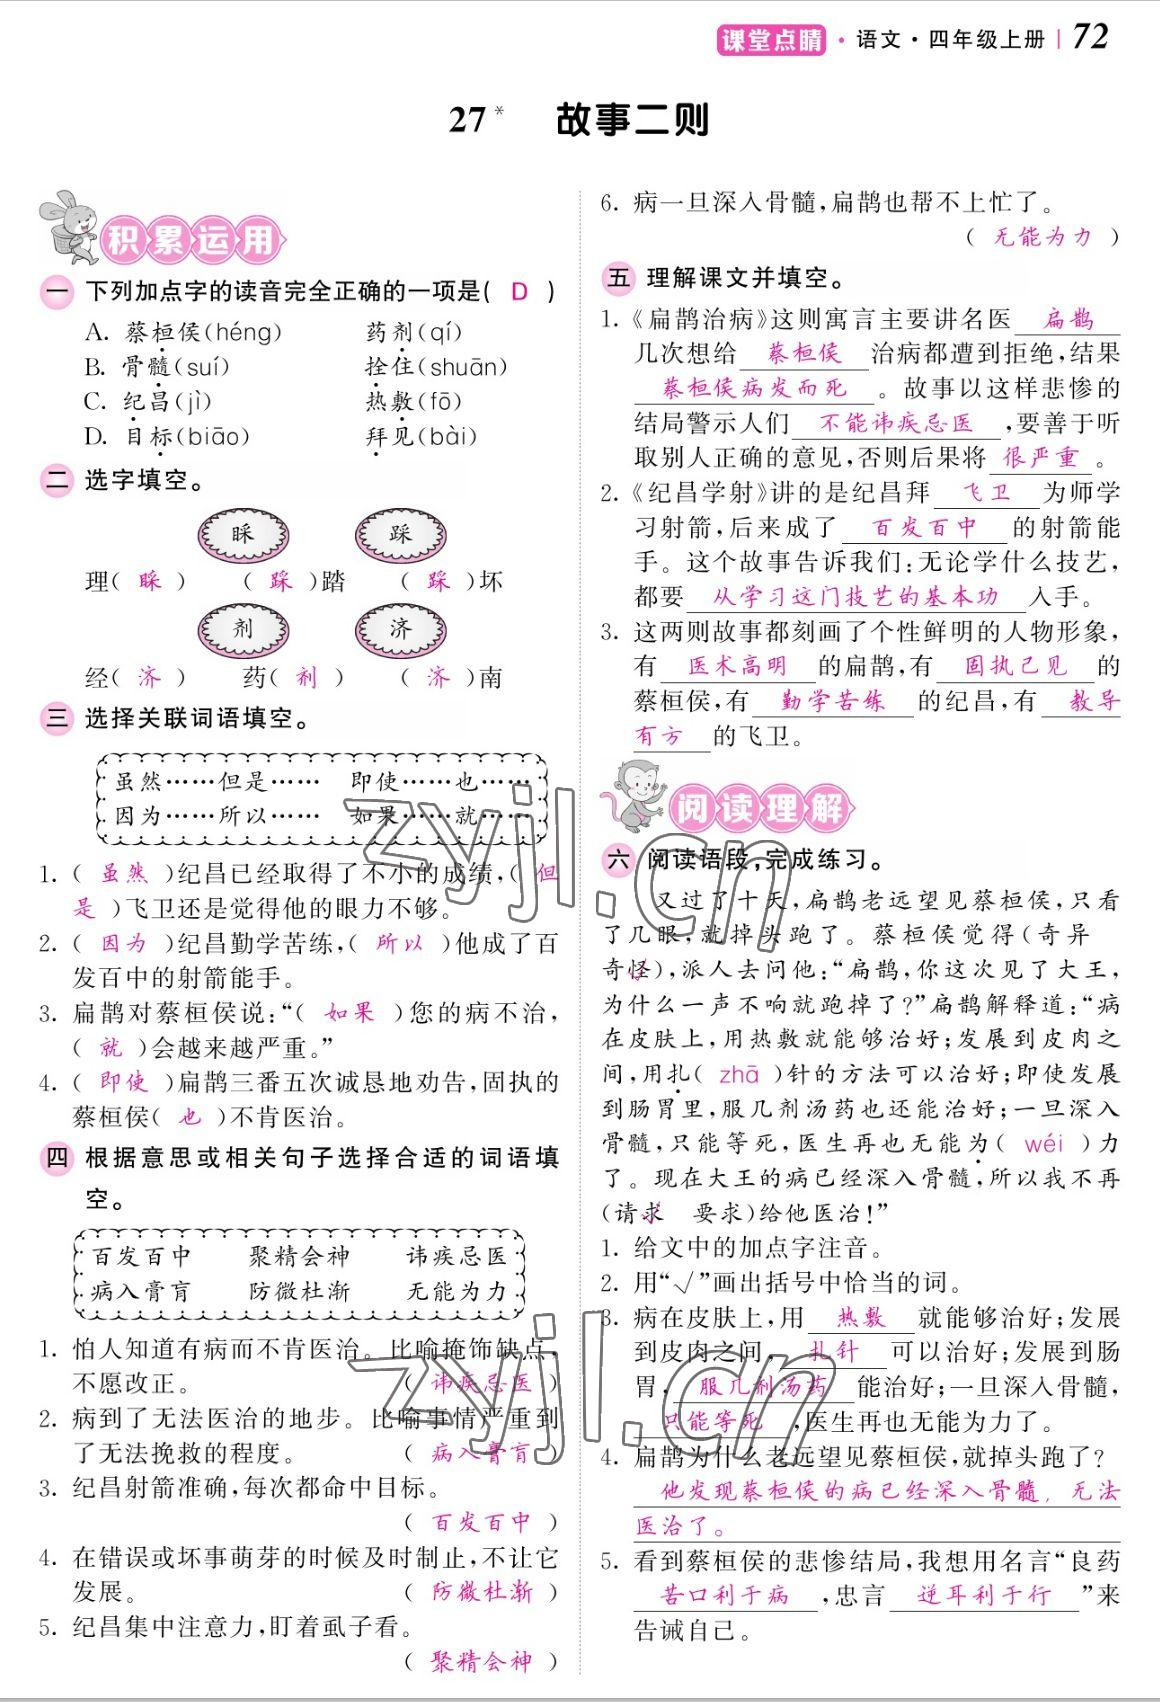 课堂点睛·语文·四年级上册 72
27* 故事二则
积累运用
一 下列加点字的读音完全正确的一项是( D )
A. 蔡桓侯(héng) 药剂(qí)
B. 骨髓(suí) 拴住(shuān)
C. 纪昌(jì) 热敷(fō)
D. 目标(biāo) 拜见(bài)
二 选字填空。
睬 踩
理( 睬 ) ( 踩 )踏 ( 踩 )坏
剂 济
经( 济 ) 药( 剂 ) ( 济 )南
三 选择关联词语填空。
虽然……但是…… 即使……也……
因为……所以…… 如果……就……
1. ( 虽然 )纪昌已经取得了不小的成绩,( 但
是 )飞卫还是觉得他的眼力不够。
2. ( 因为 )纪昌勤学苦练,( 所以 )他成了百
发百中的射箭能手。
3. 扁鹊对蔡桓侯说:“( 如果 )您的病不治,
( 就 )会越来越严重。”
4. ( 即使 )扁鹊三番五次诚恳地劝告,固执的
蔡桓侯( 也 )不肯医治。
四 根据意思或相关句子选择合适的词语填
空。
百发百中 聚精会神 讳疾忌医
病入膏肓 防微杜渐 无能为力
1. 怕人知道有病而不肯医治。比喻掩饰缺点,
不愿改正。 ( 讳疾忌医 )
2. 病到了无法医治的地步。比喻事情严重到
了无法挽救的程度。 ( 病入膏肓 )
3. 纪昌射箭准确,每次都命中目标。
( 百发百中 )
4. 在错误或坏事萌芽的时候及时制止,不让它
发展。 ( 防微杜渐 )
5. 纪昌集中注意力,盯着虱子看。
( 聚精会神 )
6. 病一旦深入骨髓,扁鹊也帮不上忙了。
( 无能为力 )
五 理解课文并填空。
1.《扁鹊治病》这则寓言主要讲名医 扁鹊
几次想给 蔡桓侯 治病都遭到拒绝,结果
蔡桓侯病发而死 。故事以这样悲惨的
结局警示人们 不能讳疾忌医 ,要善于听
取别人正确的意见,否则后果将 很严重 。
2.《纪昌学射》讲的是纪昌拜 飞卫 为师学
习射箭,后来成了 百发百中 的射箭能
手。这个故事告诉我们:无论学什么技艺,
都要 从学习这门技艺的基本功 入手。
3. 这两则故事都刻画了个性鲜明的人物形象,
有 医术高明 的扁鹊,有 固执己见 的
蔡桓侯,有 勤学苦练 的纪昌,有 教导
有方 的飞卫。
阅读理解
六 阅读语段,完成练习。
又过了十天,扁鹊老远望见蔡桓侯,只看
了几眼,就掉头跑了。蔡桓侯觉得(奇异
奇怪√),派人去问他:“扁鹊,你这次见了大王,
为什么一声不响就跑掉了?”扁鹊解释道:“病
在皮肤上,用热敷就能够治好;发展到皮肉之
间,用扎( zhā )针的方法可以治好;即使发展
到肠胃里,服几剂汤药也还能治好;一旦深入
骨髓,只能等死,医生再也无能为( wéi )力
了。现在大王的病已经深入骨髓,所以我不再
(请求√ 要求)给他医治!”
1. 给文中的加点字注音。
2. 用“√”画出括号中恰当的词。
3. 病在皮肤上,用 热敷 就能够治好;发展
到皮肉之间, 扎针 可以治好;发展到肠
胃, 服几剂汤药 能治好;一旦深入骨髓,
只能等死 ,医生再也无能为力了。
4. 扁鹊为什么老远望见蔡桓侯,就掉头跑了?
他发现蔡桓侯的病已经深入骨髓,无法
医治了。
5. 看到蔡桓侯的悲惨结局,我想用名言“良药
苦口利于病 ,忠言 逆耳利于行 ”来
告诫自己。
zyjl.cn
zyjl.cn